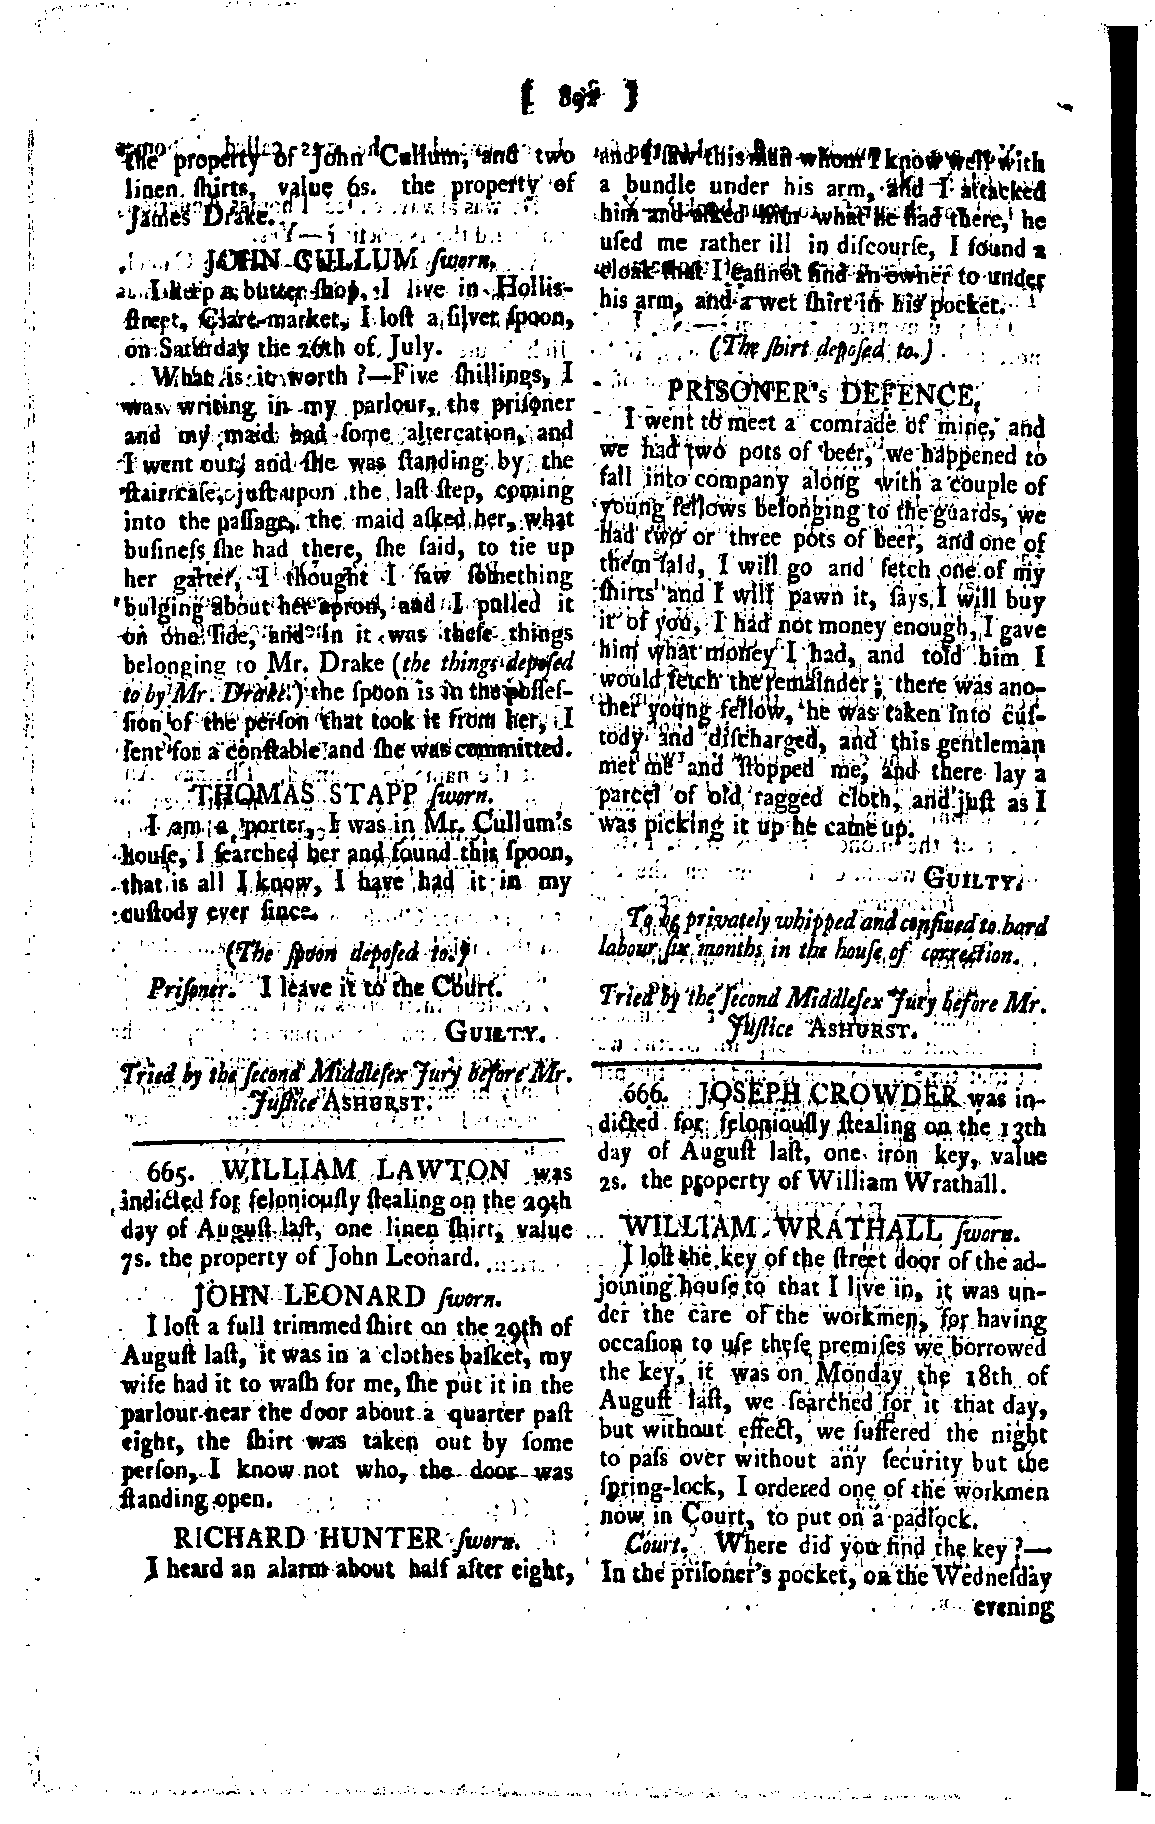 [ 892 ]
the property of John Cullum, and two
linen ſhirts, value 6s. the property of
James Drake.
JOHN CULLUM ſworn.
I keep a butter ſhop, I live in Hollis-
ſtreet, Clare-market, I loſt a ſilver ſpoon,
on Saturday the 26th of July.
What is it worth ?—Five ſhillings, I
was writing in my parlour, the priſoner
and my maid had ſome altercation, and
I went out, and ſhe was ſtanding by the
ſtaircaſe, juſt upon the laſt ſtep, coming
into the paſſage, the maid aſked her, what
buſineſs ſhe had there, ſhe ſaid, to tie up
her garter, I thought I ſaw ſomething
bulging about her apron, and I pulled it
on one ſide, and in it was theſe things
belonging to Mr. Drake (the things depoſed
to by Mr. Drake.) the ſpoon is in the poſſeſ-
ſion of the perſon that took it from her, I
ſent for a conſtable and ſhe was committed.
THOMAS STAPP ſworn.
I am a porter, I was in Mr. Cullum's
houſe, I ſearched her and found this ſpoon,
that is all I know, I have had it in my
cuſtody ever ſince.
(The ſpoon depoſed to.)
Priſoner. I leave it to the Court.
GUILTY.
Tried by the ſecond Middleſex Jury before Mr.
Juſtice ASHURST.
665. WILLIAM LAWTON was
indicted for feloniouſly ſtealing on the 29th
day of Auguſt laſt, one linen ſhirt, value
7s. the property of John Leonard.
JOHN LEONARD ſworn.
I loſt a full trimmed ſhirt on the 29th of
Auguſt laſt, it was in a clothes baſket, my
wife had it to waſh for me, ſhe put it in the
parlour near the door about a quarter paſt
eight, the ſhirt was taken out by ſome
perſon, I know not who, the door was
ſtanding open.
RICHARD HUNTER ſworn.
I heard an alarm about half after eight,
and I ſaw this man whom I know well with
a bundle under his arm, and I attacked
him and aſked him what he had there, he
uſed me rather ill in diſcourſe, I found a
cloak that I cannot find an owner to under
his arm, and a wet ſhirt in his pocket.
(The ſhirt depoſed to.)
PRISONER's DEFENCE.
I went to meet a comrade of mine, and
we had two pots of beer, we happened to
fall into company along with a couple of
young fellows belonging to the guards, we
had two or three pots of beer, and one of
them ſaid, I will go and fetch one of my
ſhirts and I will pawn it, ſays I will buy
it of you, I had not money enough, I gave
him what money I had, and told him I
would fetch the remainder; there was ano-
ther young fellow, he was taken into cuſ-
tody and diſcharged, and this gentleman
met me and ſtopped me, and there lay a
parcel of old ragged cloth, and juſt as I
was picking it up he came up.
GUILTY.
To be privately whipped and confined to hard
labour ſix months in the houſe of correction.
Tried by the ſecond Middleſex Jury before Mr.
Juſtice ASHURST.
666. JOSEPH CROWDER was in-
dicted for feloniouſly ſtealing on the 13th
day of Auguſt laſt, one iron key, value
2s. the property of William Wrathall.
WILLIAM WRATHALL ſworn.
I loſt the key of the ſtreet door of the ad-
joining houſe to that I live in, it was un-
der the care of the workmen, for having
occaſion to uſe theſe premiſes we borrowed
the key, it was on Monday the 18th of
Auguſt laſt, we ſearched for it that day,
but without effect, we ſuffered the night
to paſs over without any ſecurity but the
ſpring-lock, I ordered one of the workmen
now in Court, to put on a padlock.
Court. Where did you find the key ?—
In the priſoner's pocket, on the Wedneſday
evening